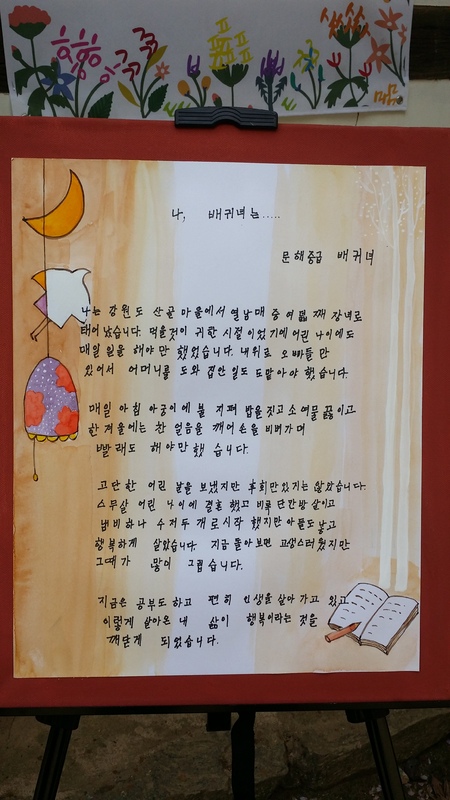 나, 배귀녀는.....
문해중급 배귀녀
나는 강원도 산골 마을에서 열남매 중 여덟 째 장녀로
태어났습니다. 먹을것이 귀한 시절이었기에 어린 나이에도
매일 일을 해야만 했었습니다. 내위로 오빠들만
있어서 어머니를 도와 집안일도 도맡아야 했습니다.
매일 아침 아궁이에 불 지펴 밥을 짓고 소여물 끓이고
한겨울에는 찬 얼음을 깨어 손을 비벼가며
빨래도 해야만 했 습니다.
고단한 어린 날을 보냈지만 후회만있기는 않았습니다.
스무살 어린 나이에 결혼 했고 비록 단칸방 살이고
냄비하나 수저두 개로 시작 했지만 아들도 낳고
행복하게 살았습니다 지금 돌아보면 고생스러웠지만
그때가 많이 그립습니다.
지금은 공부도 하고 편히 인생을 살아가고 있고
이렇게 살아온 내 삶이 행복이라는 것을
깨닫게 되었습니다.